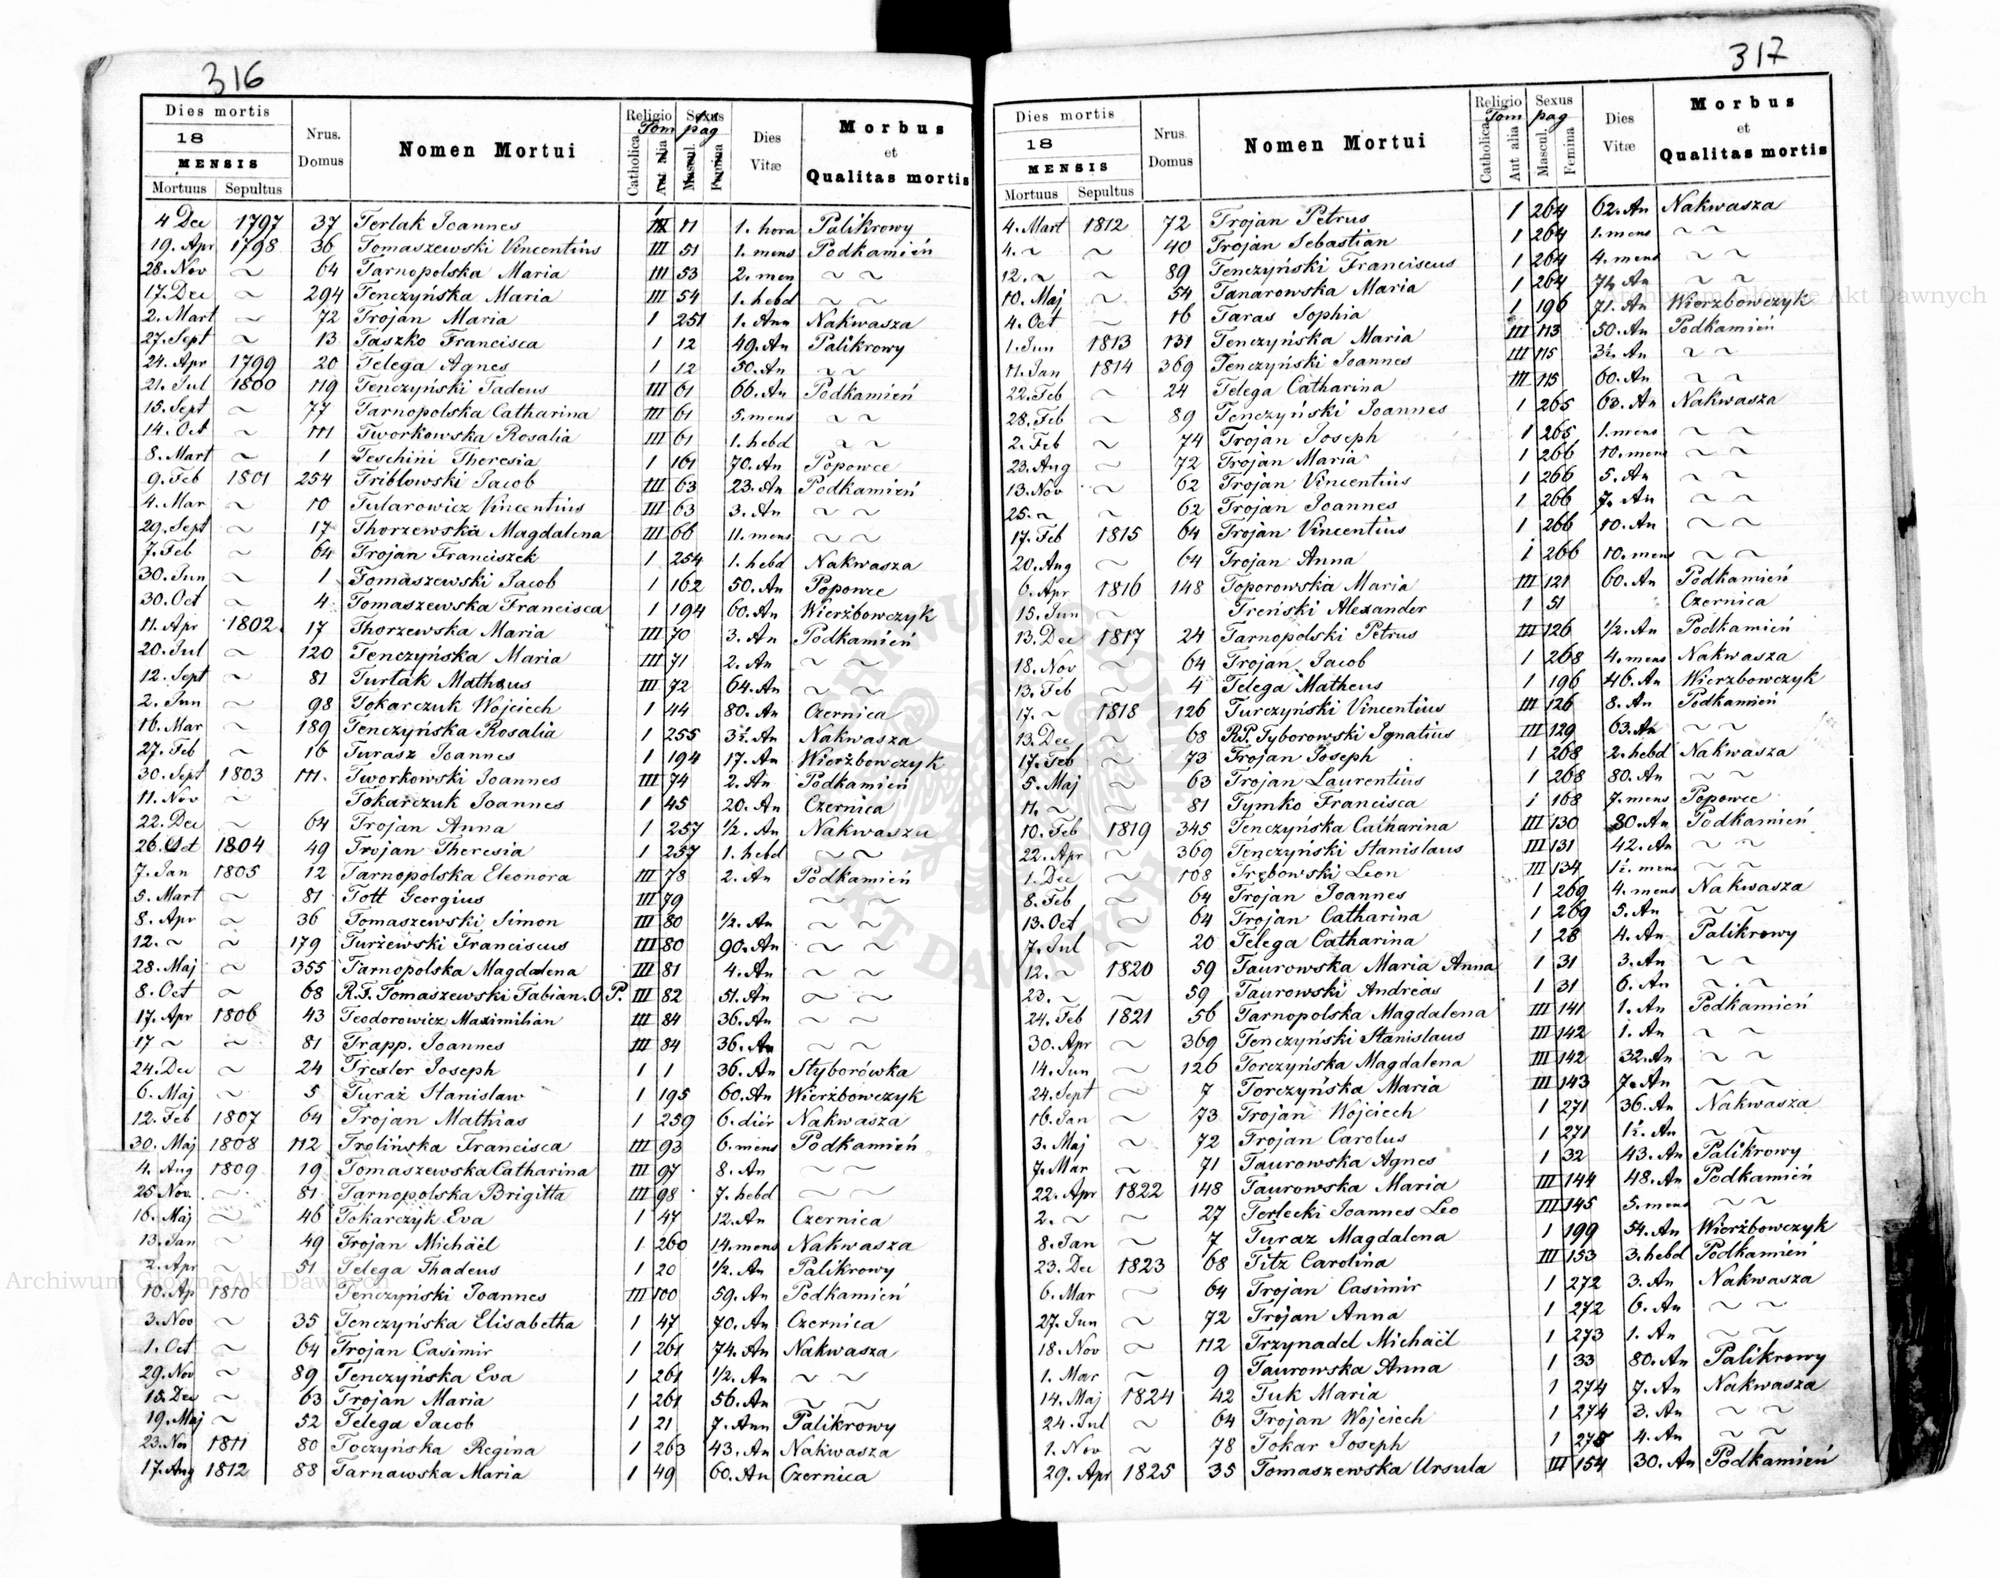 316
Dies mortis
18
MENSIS
Mortuus Sepultus
Nrus. Domus
Nomen Mortui
Religio
Tom
Catholica
Aut alia
Sexus
pag
Mascul.
Femina
Dies Vitæ
Morbus et Qualitas mortis
4 Dec 1797 37 Terlak Joannes III 11 1. hora Palikrowy
19. Apr 1798 36 Tomaszewski Vincentius III 51 1. mens Podkamień
28. Nov ~ 64 Tarnopolska Maria III 53 2. men ~ ~
17. Dec ~ 294 Tenczyńska Maria III 54 1. hebd ~ ~
2. Mart ~ 72 Trojan Maria 1 251 1. Ann Nakwasza
27. Sept ~ 13 Taszko Francisca 1 12 49. An Palikrowy
24. Apr 1799 20 Telega Agnes 1 12 50. An ~ ~
21. Jul 1800 119 Tenczyński Tadeus III 61 66. An Podkamień
15. Sept ~ 77 Tarnopolska Catharina III 61 5. mens ~ ~
14. Oct ~ 111 Tworkowska Rosalia III 61 1. hebd ~ ~
8. Mart ~ 1 Teschini Theresia 1 161 70. An Popowce
9. Feb 1801 254 Triblowski Jacob III 63 23. An Podkamień
4. Mar ~ 10 Tularowicz Vincentius III 63 3. An ~ ~
29. Sept ~ 17 Thorzewska Magdalena III 66 11. mens ~ ~
7. Feb ~ 64 Trojan Franciszek 1 254 1. hebd Nakwasza
30. Jun ~ 1 Tomaszewski Jacob 1 162 50. An Popowce
30. Oct ~ 4 Tomaszewska Francisca 1 194 60. An Wierzbowczyk
11. Apr 1802. 17 Thorzewska Maria III 70 3. An Podkamień
20. Jul ~ 120 Tenczyńska Maria III 71 2. An ~ ~
12. Sept ~ 81 Turlak Matheus III 72 64. An ~ ~
2. Jun ~ 98 Tokarczuk Wojciech 1 44 80. An Czernica
16. Mar ~ 189 Tenczyńska Rosalia 1 255 3½. An Nakwasza
27. Feb ~ 16 Turasz Joannes 1 194 17. An Wierzbowczyk
30. Sept 1803 111. Tworkowski Joannes III 74 2. An Podkamień
11. Nov ~ Tokarczuk Joannes 1 45 20. An Czernica
22. Dec ~ 64 Trojan Anna 1 257 1/2. An Nakwasza
26. Oct 1804 49 Trojan Theresia 1 257 1. hebd ~ ~
7. Jan 1805 12 Tarnopolska Eleonora III 78 2. An Podkamień
5. Mart ~ 81 Tott Georgius III 79 ~ ~
8. Apr ~ 36 Tomaszewski Simon III 80 1/2. An ~ ~
12. ~ ~ 179 Turżewski Franciscus III 80 90. An ~ ~
28. Maj ~ 355 Tarnopolska Magdalena III 81 4. An ~ ~
8. Oct ~ 68 R.F. Tomaszewski Fabian. O.P. III 82 51. An ~ ~
17. Apr 1806 43 Teodorowicz Maximilian III 84 36. An ~ ~
17 ~ ~ 81 Trapp. Joannes III 84 36. An ~ ~
24. Dec ~ 24 Trexler Joseph 1 1 36. An Styborówka
6. Maj ~ 5 Turaż Stanislaw 1 195 60. An Wierżbowczyk
12. Feb 1807 64 Trojan Mathias 1 259 6. dier Nakwasza
30. Maj 1808 112 Trolińska Francisca III 93 6. mens Podkamień
4. Aug 1809 19 Tomaszewska Catharina III 97 8. An ~ ~
25 Nov. ~ 81 Tarnopolska Brigitta III 98 7. hebd ~ ~
16. Maj ~ 46 Tokarczyk Eva 1 47 12. An Czernica
13. Jan ~ 49 Trojan Michäel 1 260 14. mens Nakwasza
2. Apr ~ 51 Telega Thadeus 1 20 1/2. An Palikrowy
10. Ap 1810 Tenczyński Joannes III 100 59. An Podkamień
3. Nov ~ 35 Tenczyńska Elisabetha 1 47 70. An Czernica
1. Oct ~ 64 Trojan Casimir 1 261 74. An Nakwasza
29. Nov ~ 89 Tenczyńska Eva 1 261 1/2. An ~ ~
15. Dec ~ 63 Trojan Maria 1 261 56. An ~ ~
19. Maj ~ 52 Telega Jacob 1 21 7. Ann Palikrowy
23. Nov 1811 80 Toczyńska Regina 1 263 43. An Nakwasza
17. Aug 1812 88 Tarnawska Maria 1 49 60. An Czernica
317
Dies mortis
18
MENSIS
Mortuus Sepultus
Nrus. Domus
Nomen Mortui
Religio
Tom
Catholica
Aut alia
Sexus
pag
Mascul.
Femina
Dies Vitæ
Morbus et Qualitas mortis
4. Mart 1812 72 Trojan Petrus 1 264 62. An Nakwasza
4. ~ ~ 40 Trojan Sebastian 1 264 1. mens ~ ~
12. ~ ~ 89 Tenczyński Franciscus 1 264 4. mens ~ ~
10. Maj ~ 54 Tanarowska Maria 1 264 7½ An ~ ~
4. Oct ~ 16 Taras Sophia 1 196 71. An Wierzbowczyk
1. Jun 1813 131 Tenczyńska Maria III 113 50. An Podkamień
11. Jan 1814 369 Tenczyński Joannes III 115 3½. An ~ ~
22. Feb ~ 24 Telega Catharina III 115 60. An ~ ~
28. Feb ~ 89 Tenczyński Joannes 1 265 63. An Nakwasza
2. Feb ~ 74 Trojan Joseph 1 265 1. mens ~ ~
23. Aug ~ 72 Trojan Maria 1 266 10. mens ~ ~
13. Nov ~ 62 Trojan Vincentius 1 266 5. An ~ ~
25. ~ ~ 62 Trojan Joannes 1 266 7. An ~ ~
17. Feb 1815 64 Trojan Vincentius 1 266 10. An ~ ~
20. Aug ~ 64 Trojan Anna 1 266 10. mens ~ ~
6. Apr 1816 148 Toporowska Maria III 121 60. An Podkamień
15. Jun ~ Treński Alexander 1 51 Czernica
13. Dec 1817 24 Tarnopolski Petrus III 126 1/2. An Podkamień
18. Nov ~ 64 Trojan Jacob 1 268 4. mens Nakwasza
13. Feb ~ 4 Telega Matheus 1 196 46. An Wierzbowczyk
17. ~ 1818 126 Turczyński Vincentius III 126 8. An Podkamień
13. Dec ~ 68 R.P. Tyborowski Ignatius III 129 63. An ~ ~
17. Feb ~ 73 Trojan Joseph 1 268 2. hebd Nakwasza
5. Maj ~ 63 Trojan Laurentius 1 268 80. An ~ ~
11. ~ ~ 81 Tymko Francisca 1 168 7. mens Popowce
10. Feb 1819 345 Tenczyńska Catharina III 130 80. An Podkamień
22. Apr ~ 369 Tenczyński Stanislaus III 131 42. An ~ ~
1. Dec ~ 108 Trębowski Leon III 134 1½. mens ~ ~
8. Feb ~ 64 Trojan Joannes 1 269 4. mens Nakwasza
13. Oct ~ 64 Trojan Catharina 1 269 5. An ~ ~
7. Jul ~ 20 Telega Catharina 1 28 4. An Palikrowy
12. ~ 1820 59 Taurowska Maria Anna 1 31 3. An ~ ~
23. ~ ~ 59 Taurowski Andreas 1 31 6. An ~ ~
24. Feb 1821 56 Tarnopolska Magdalena III 141 1. An Podkamień
30. Apr ~ 369 Tenczyński Stanislaus III 142 1. An ~ ~
14. Jun ~ 126 Torczyńska Magdalena III 142 32. An ~ ~
24. Sept ~ 7 Torczyńska Maria III 143 7. An ~ ~
16. Jan ~ 73 Trojan Wojciech 1 271 36. An Nakwasza
3. Maj ~ 72 Trojan Carolus 1 271 1½. An ~ ~
7. Mar ~ 71 Taurowska Agnes 1 32 43. An Palikrowy
22. Apr 1822 148 Taurowska Maria III 144 48. An Podkamień
2. ~ ~ 27 Terlecki Joannes Leo III 145 5. mens ~ ~
8. Jan ~ 7 Turaz Magdalena 1 199 54. An Wierżbowczyk
23. Dec 1823 68 Titz Carolina III 153 3. hebd Podkamień
6. Mar ~ 64 Trojan Casimir 1 272 3. An Nakwasza
27. Jun ~ 72 Trojan Anna 1 272 6. An ~ ~
18. Nov ~ 112 Trzynadel Michaël 1 273 1. An ~ ~
1. Mar ~ 9 Taurowska Anna 1 33 80. An Palikrowy
14. Maj 1824 42 Tuk Maria 1 274 7. An Nakwasza
24. Jul ~ 64 Trojan Wojciech 1 274 3. An ~ ~
1. Nov ~ 78 Tokar Joseph 1 275 4. An ~ ~
29. Apr 1825 35 Tomaszewska Ursula III 154 30. An Podkamień
Archiwum Główne Akt Dawnych
Archiwum Główne Akt Dawnych